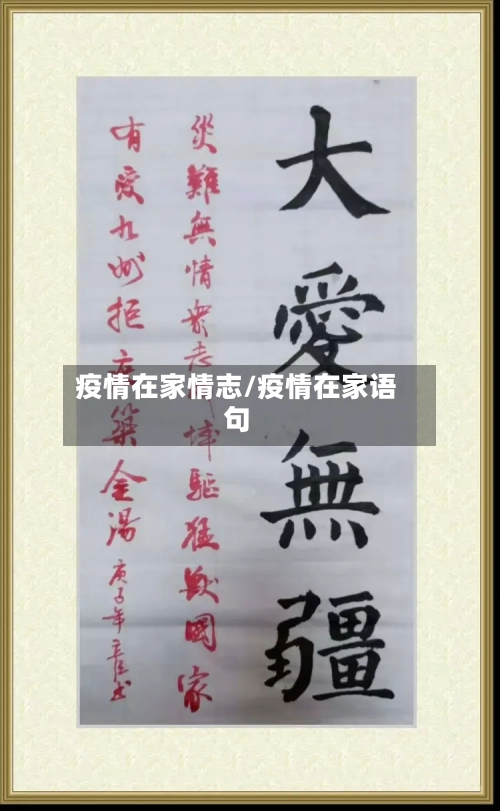 大愛無疆
災難無情衆志驅猛獸國家
有愛九州拒築金湯
庚子年书
疫情在家情志/疫情在家语
句